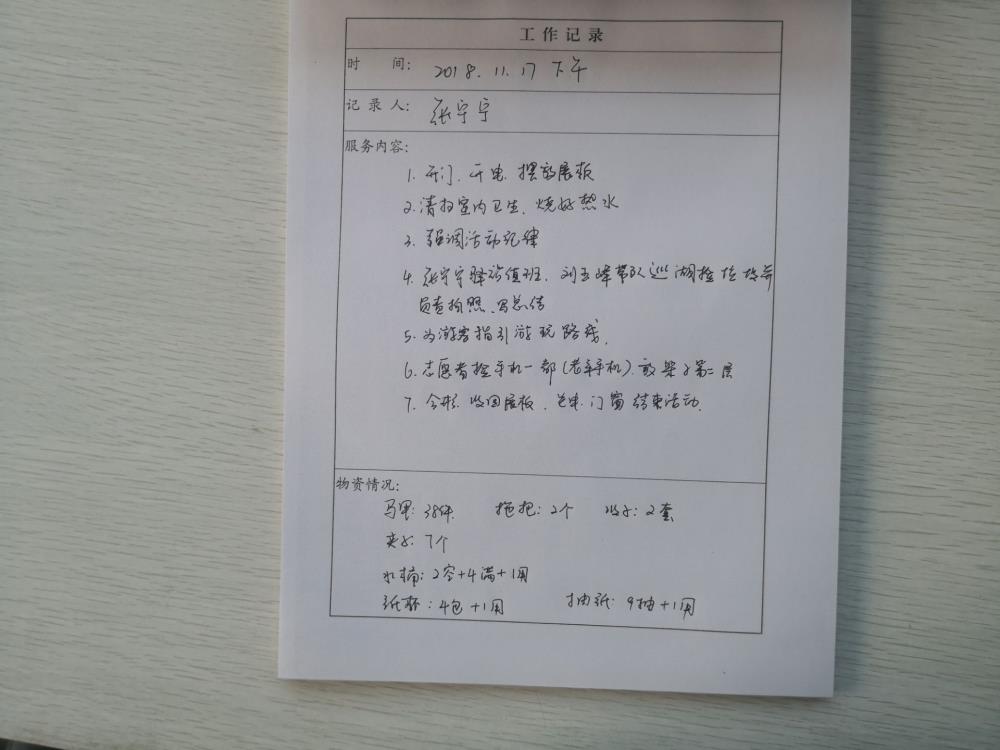 工作记录
时 间： 2018.11.17 下午
记录人： 张宁宁
服务内容：
1. 开门、开电、摆放展板
2. 清扫室内卫生、烧好热水
3. 强调活动纪律
4. 张宁宁驿站值班、刘玉峰带队巡湖捡垃圾并
负责拍照、写总结
5. 为游客指引游玩路线、
6. 志愿者捡手机一部(老年手机)、放架子第二层
7. 合影、收回展板、关电、门窗 结束活动.
物资情况：
马甲: 38件 拖把: 2个 2套
夹子: 7个
水桶: 2空+4满+1用
纸杯: 4包+1用 抽纸: 9抽+1用